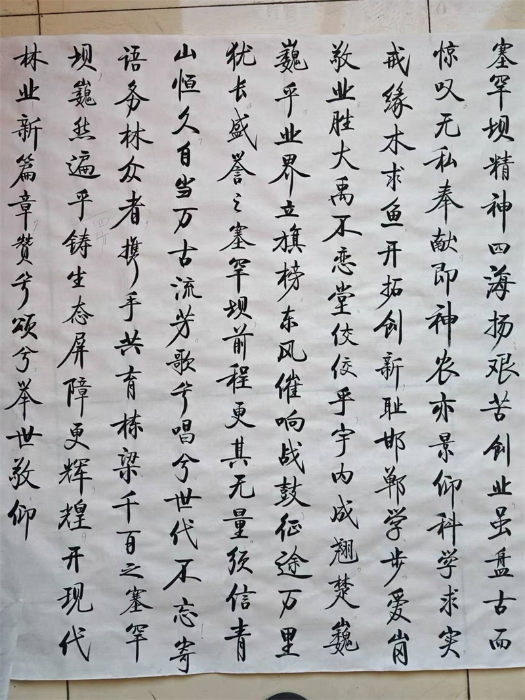 塞罕坝精神四海扬艰苦创业虽盘古而
惊叹无私奉献即神农亦景仰科学求实
戒缘木求鱼开拓创新耻邯郸学步爱岗
敬业胜大禹不恋堂佼佼乎宇内成翘楚巍
巍乎业界立旗榜东风催响战鼓征途万里
犹长盛誉之塞罕坝前程更其无量须信青
山恒久自当万古流芳歌兮唱兮世代不忘寄
语务林众者携手共育栋梁千百之塞罕
坝巍然遍乎铸生态屏障更辉煌开现代
林业新篇章赞兮颂兮举世敬仰